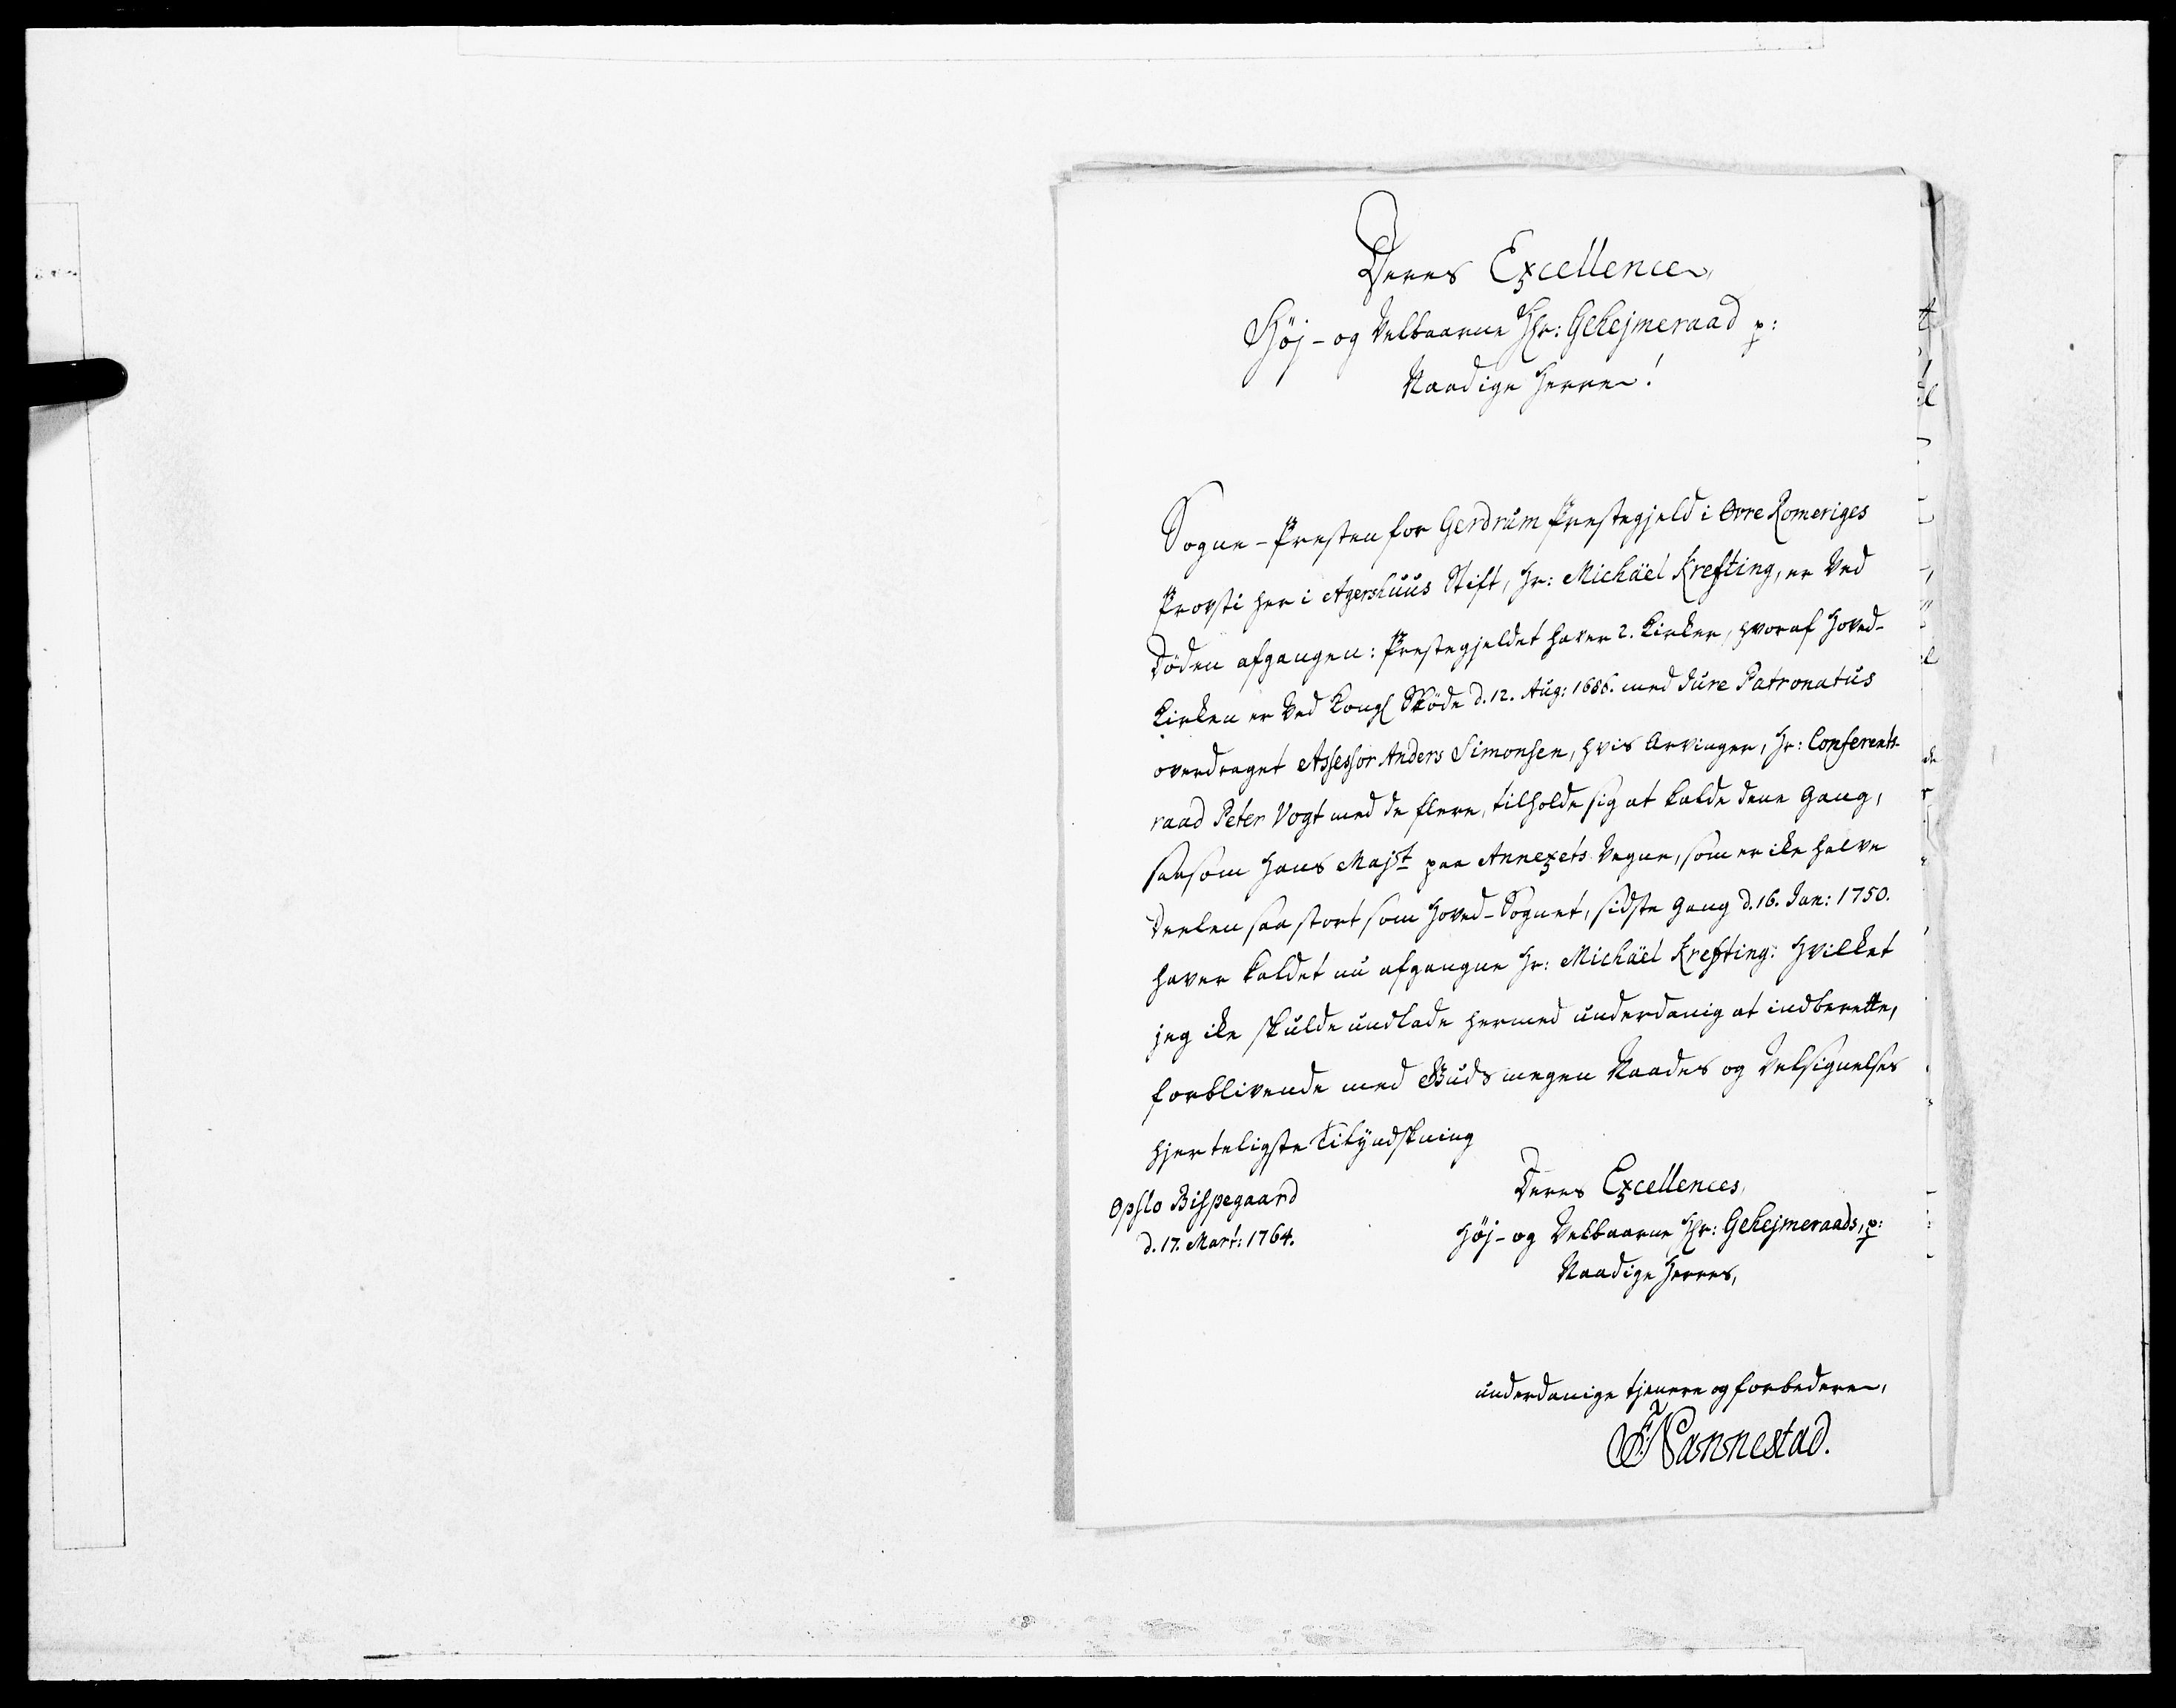 Deres Excellence,
Høj- og Velbaarne Hr: Gehejmeraad p:
Naadige Herre!
Sogne-Presten for Gerdrum Prestegjeld i Øvre Romeriges
Provsti her i Agershuus Stift, Hr: Michäel Krefting, er ved
Døden afgangen: Prestegjeldet haver 2. Kirker, hvoraf Hoved-
Kirken er ved Kongl Skøde d. 12. Aug: 1686. med Jure Patronatus
overdraget Assessor Anders Simonsen, hvis Arvinger, Hr: Conferents-
raad Peter Vogt med de flere, tilholde sig at kalde denne Gang,
saasom Hans Majst paa Annexets Vegne, som er ikke halve
Deelen saa stort som Hoved-Sognet, sidste Gang d. 16. Jan: 1750.
haver kaldet nu afgangne Hr: Michäel Krefting: hvilket
jeg ikke skulde undlade hermed underdanig at indberette,
forblivende med Guds megen Naades og Velsignelses
hjerteligste Tilynskning
Deres Excellences,
Opslo Bispegaard
Høj- og Velbaarne Hr: Gehejmeraads, p:
d. 17. Mart: 1764.
Naadige Herres,
underdanige tjenere og forbedere,
F. Nannestad.